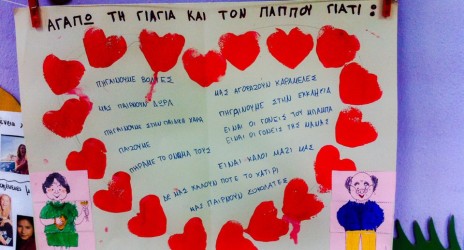 ΑΓΑΠΩ ΤΗ ΓΙΑΓΙΑ ΚΑΙ ΤΟΝ ΠΑΠΠΟΥ ΓΙΑΤΙ :
ΠΗΓΑΙΝΟΥΜΕ ΒΟΛΤΕΣ
ΜΑΣ ΠΑΙΡΝΟΥΝ ΔΩΡΑ
ΠΗΓΑΙΝΟΥΜΕ ΣΤΗΝ ΠΑΙΔΙΚΗ ΧΑΡΑ
ΠΑΙΖΟΥΜΕ
ΠΗΡΑΜΕ ΤΟ ΟΝΟΜΑ ΤΟΥΣ
ΔΕ ΜΑΣ ΧΑΛΟΥΝ ΠΟΤΕ ΤΟ ΧΑΤΙΡΙ
ΜΑΣ ΑΓΟΡΑΖΟΥΝ ΚΑΡΑΜΕΛΕΣ
ΠΗΓΑΙΝΟΥΜΕ ΣΤΗΝ ΕΚΚΛΗΣΙΑ
ΕΙΝΑΙ ΟΙ ΓΟΝΕΙΣ ΤΟΥ ΜΠΑΜΠΑ
ΕΙΝΑΙ ΟΙ ΓΟΝΕΙΣ ΤΗΣ ΜΑΜΑΣ
ΕΙΝΑΙ ΚΑΛΟΙ ΜΑΖΙ ΜΑΣ
ΜΑΣ ΠΑΙΡΝΟΥΝ ΣΟΚΟΛΑΤΕΣ